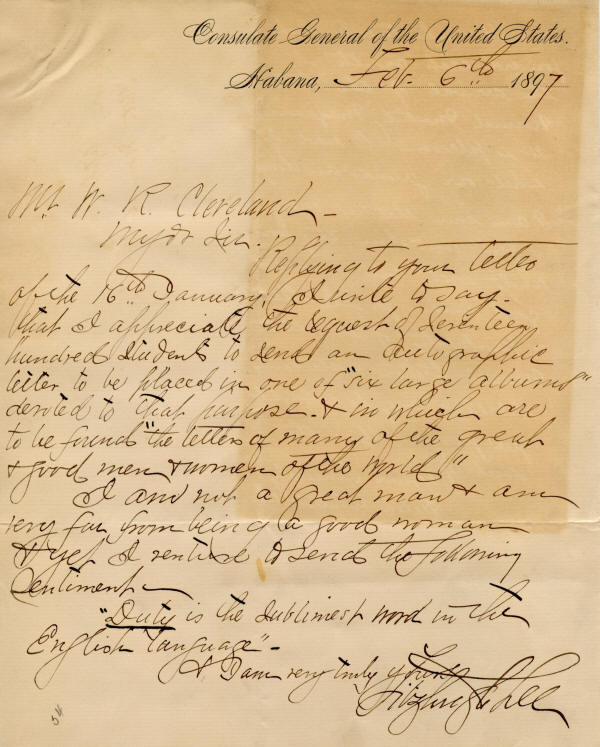 Consulate General of the United States.
Habana, Feb. 6th 1897
Mr. W. R. Cleveland -
My dr Sir.
Replying to your letter
of the 16th January, I write to say -
that I appreciate the request of seventeen
hundred students to send an autographic
letter to be placed in one of "six large albums"
devoted to that purpose - & in which are
to be found "the letters of many of the great
& good men & women of the world"
I am not a great man & am
very far from being a good woman
& yet I venture to send the following
sentiment -
"Duty is the sublimest word in the
English language" -
& I am very truly yours
Fitzhugh Lee